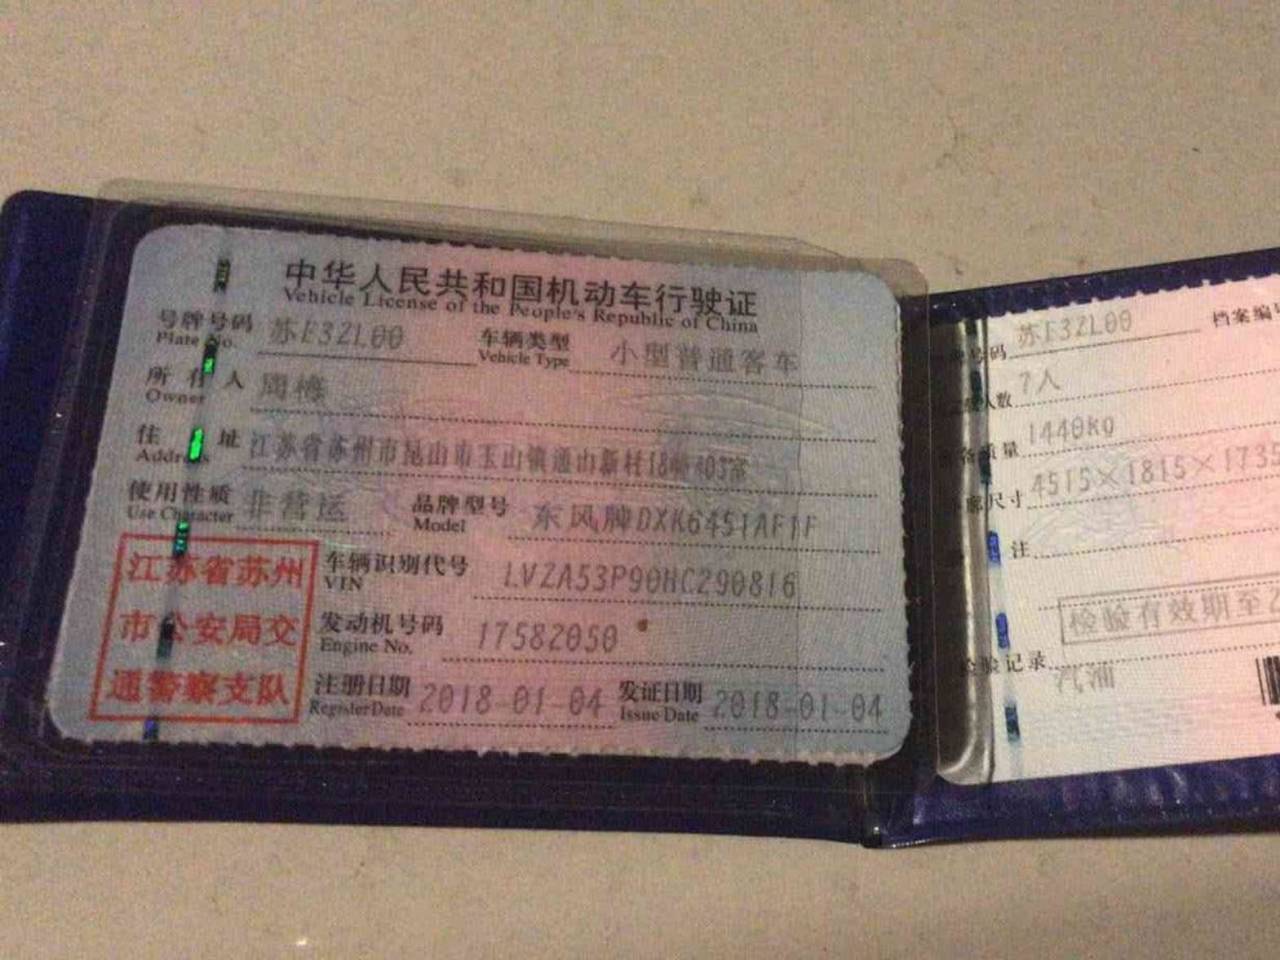 中华人民共和国机动车行驶证
Vehicle License of the People's Republic of China
号牌号码 苏E3ZL00 车辆类型 小型普通客车
Plate No. Vehicle Type
所有人 周梅
Owner
住址 江苏省苏州市昆山市玉山镇通山新村18幢403室
Address
使用性质 非营运 品牌型号 东风牌DXK6451AF1F
Use Character Model
江苏省苏州
市公安局交
通警察支队
车辆识别代号 LVZA53P90HC290816
VIN
发动机号码 17582050
Engine No.
注册日期 2018-01-04 发证日期 2018-01-04
Register Date Issue Date
号码 苏E3ZL00 档案编号
人数 7人
质量 1440kg
廓尺寸 4515×1815×1735
注
检验有效期至2
检验记录 汽油